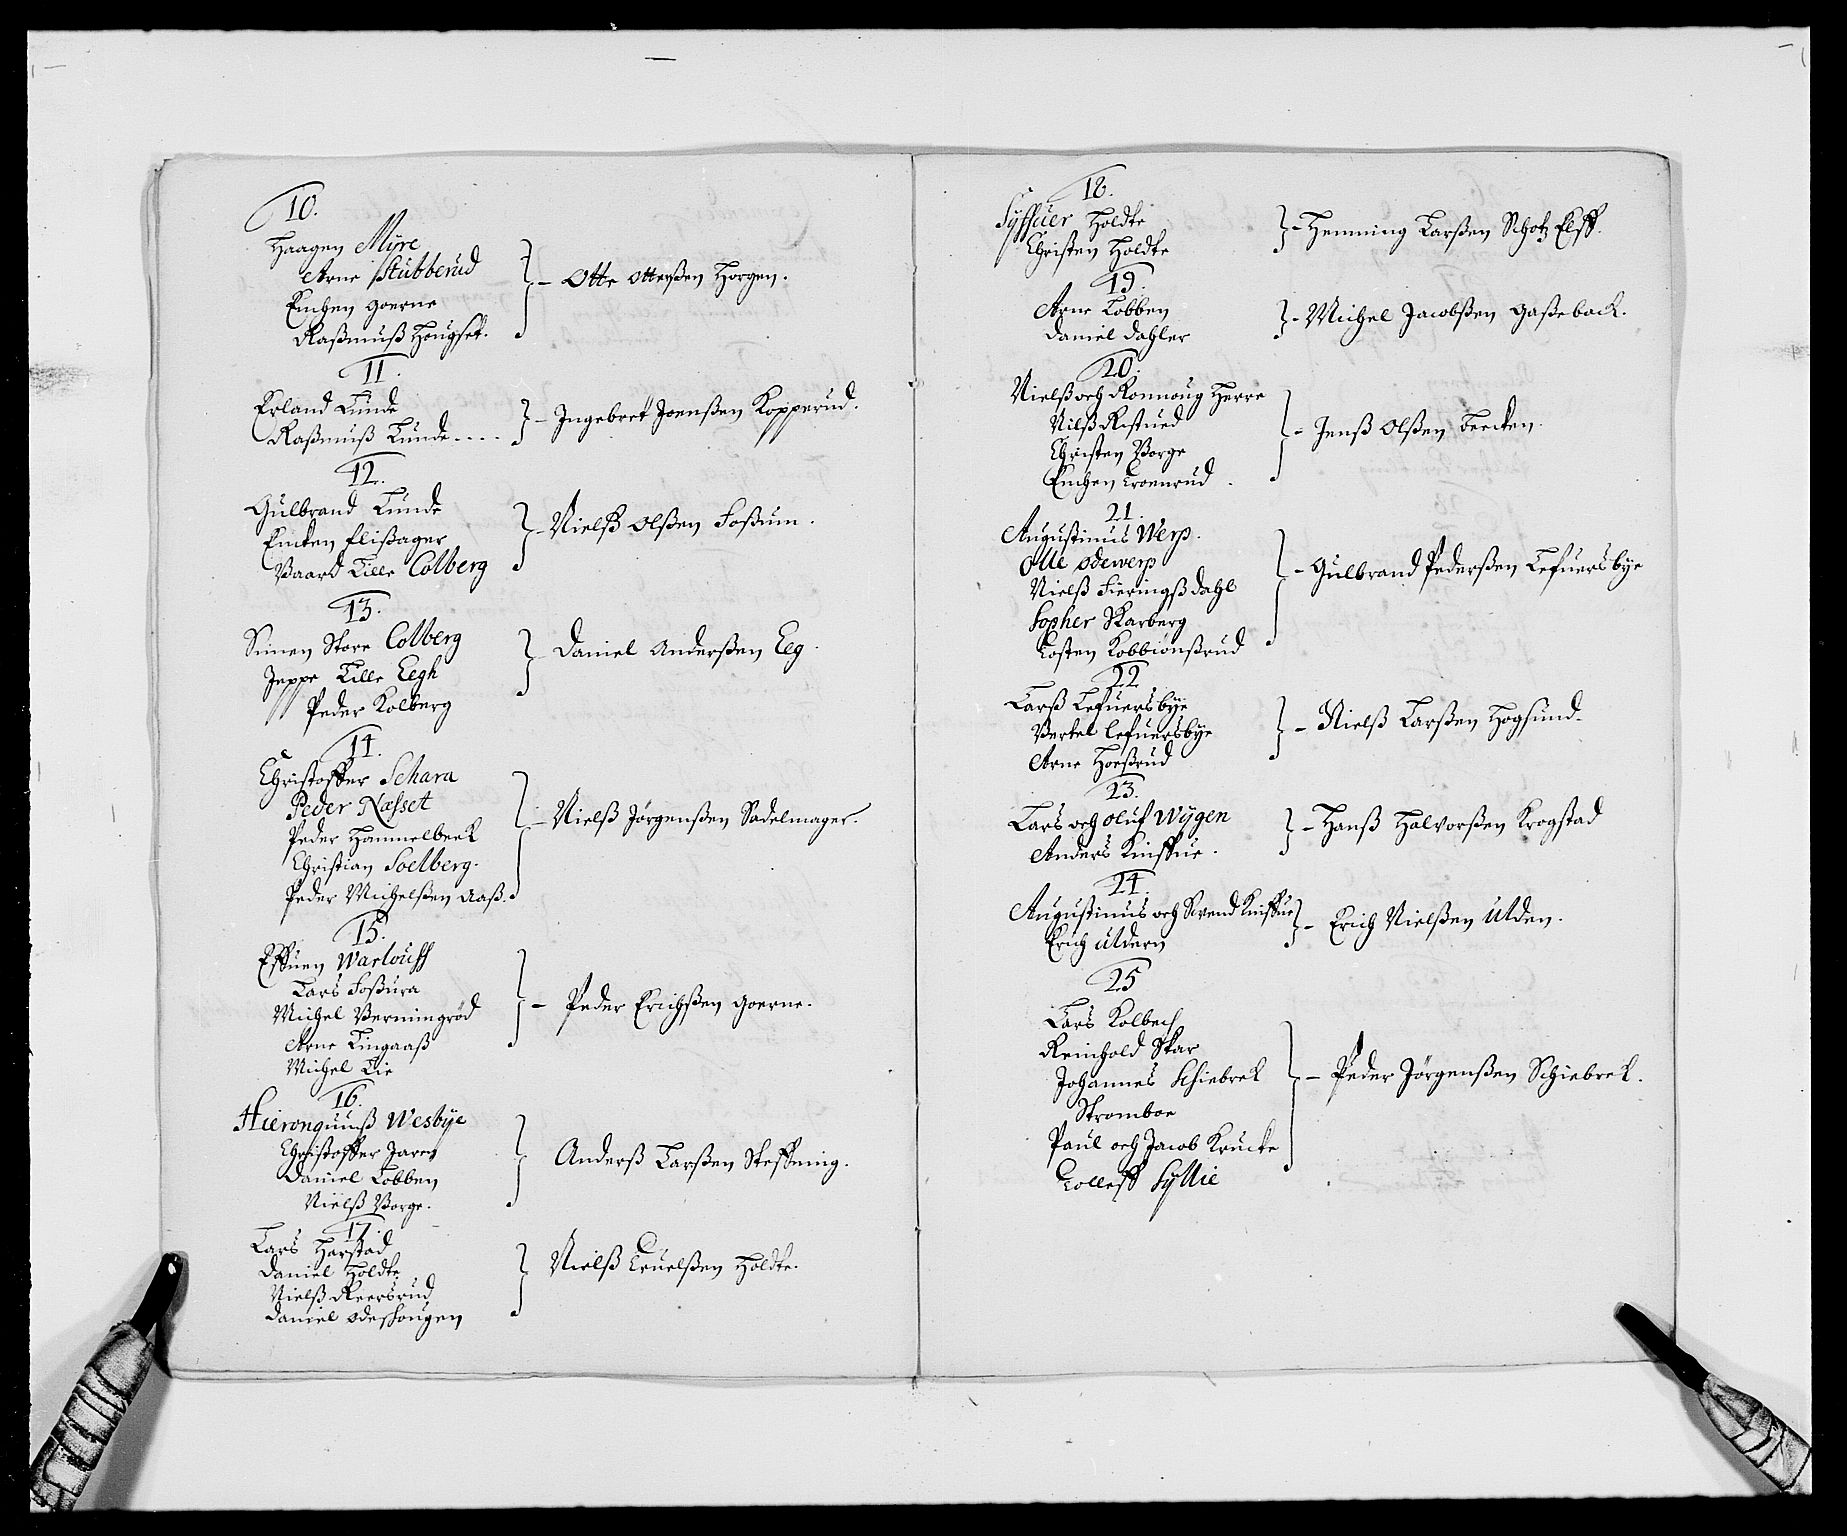 10.
Haagen Mÿre
Arne Stubberud
Enchen goerne
Raßmuß Hougset.
- Otte Otteßen Horgen.
11.
Erland Lunde
Raßmuß Lunde....
- Ingebret Joenßen Kopperud.
12.
Gulbrand Lunde
Encken flißager
Baard Lille Colberg
- Nielß Olßen Foßum.
13.
Simen Store Colberg
Jeppe Lille Eegh
Peder Kolberg
Daniel Anderßen Eeg.
14.
Christoffer Schara
Peder Næsset
Peder Hammelbeck
Christian Soelberg.
Peder Michelßen Aaß.
- Nielß Jørgenßen Sadelmager.
15.
Effuen Warlouff
Lars Foßum
Michel Vermingrød
Arne Lingaaß
Michel Lie
- Peder Erichßen goerne.
16.
Wesbÿe
Christoffer Jaren
Daniel Lobben
Nielß Borge.
Anderß Larßen Steffning.
17.
Lars Harstad
Daniel Holdte
Nielß Reersrud
Daniel Ødeshougen
Nielß Truelßen Holdte.
18.
Sÿffuer Holdte
Christen Holdte
- Henning Larßen Elff.
19.
Arne Lobben
Daniel Dahler
- Michel Jacobßen Gaßeback.
20.
Nielß och Ronnoug Herre
Nilß Ristued
Christen Borge
Enchen Troenrud.
- Jenß Olßen Beecken.
21.
Augustinus Werp.
Olle Ødewerp
Nielß Fieringßdahl
Sopher Skarberg
Tosten Kobbionßrud
- Gulbrand Pederßen Lefuersbÿe
22
Larß Lefuersbÿe
Bertel Lefuersbÿe
Arne Horßrud
- Nielß Larßen Hogsund.
23.
Lars och Oluf Wÿgen
Anders Kniffue.
- Hanß Halvorßen Krogstad
24.
Augustinus och Svend Kniffue
Erich Ulden
- Erich Nielßen Ulden.
25
Lars Kolbech
Reinhold Skar
Johannes Schiebrek
Stromboe
Paul och Jacob Krucke
Tolleff Sÿllie
- Peder Jørgenßen Schiebrek.